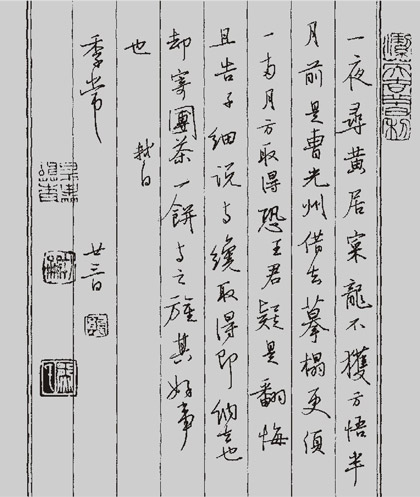 一夜尋黄居寀龍不獲方悟半
月前是曹光州借去摹榻更須
一兩月方取得恐王君疑是翻悔
且告子細説與纔取得即納去也
却寄團茶一餅與之旌其好事
也
軾白
季常
廿三日